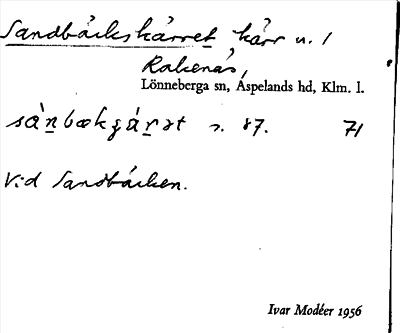 Sandbäckskärret kärr n. 1
Rakenäs,
Lönneberga sn, Aspelands hd, Klm. l.
sànbækɟárət s. 87. 71
Vid Sandbäcken.
Ivar Modéer 1956